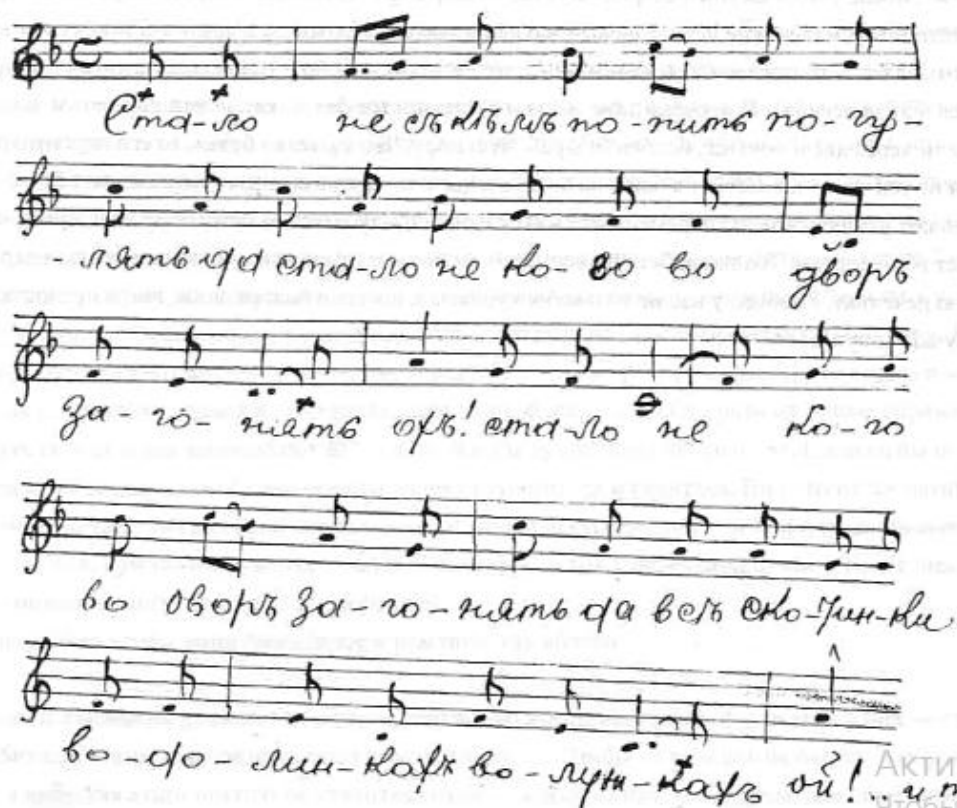 Ста-ло не съ кѣмъ по-пить по-гу-
лять да ста-ло не ко-во во дворъ
За-го-нять охъ! ста-ло не ко-го
во дворъ за-го-нять да всѣ ско-тин-ки
во до-лин-кахъ во-луж-кахъ ой! и т
Акти